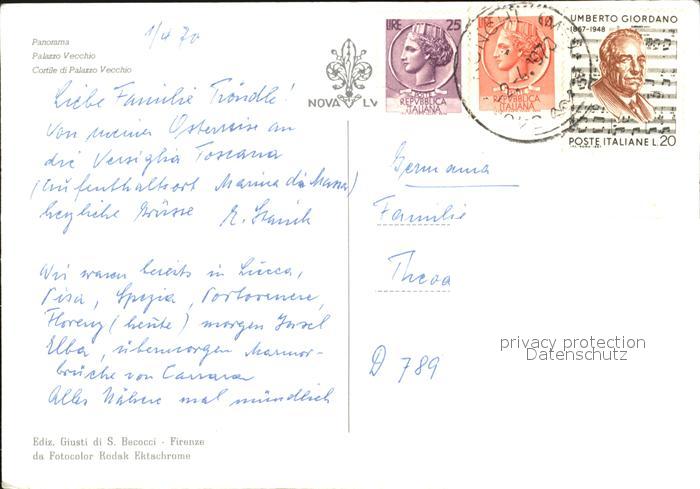 1/4 70
Panorama
Palazzo Vecchio
Cortile di Palazzo Vecchio
NOVA LV
LIRE 25
POSTE
REPVBBLICA
ITALIANA
LIRE
REPVBBLICA
ITALIANA
UMBERTO GIORDANO
1867-1948
POSTE ITALIANE L.20
Liebe Familie Tröndle!
Von meiner Osterreise an
die Versiglia Toscana
(Aufenthaltsort Marina di Massa)
herzliche Grüsse
Wir waren bereits in Lucca,
Pisa, Spezia, Portovenere,
Florenz (heute) morgen Insel
Elba, übermorgen Marmor-
brüche von Carrara
Alles Nähere mal mündlich
Germania
Familie
Theoa
D 789
privacy protection
Datenschutz
Ediz. Giusti di S. Becocci - Firenze
da Fotocolor Kodak Ektachrome